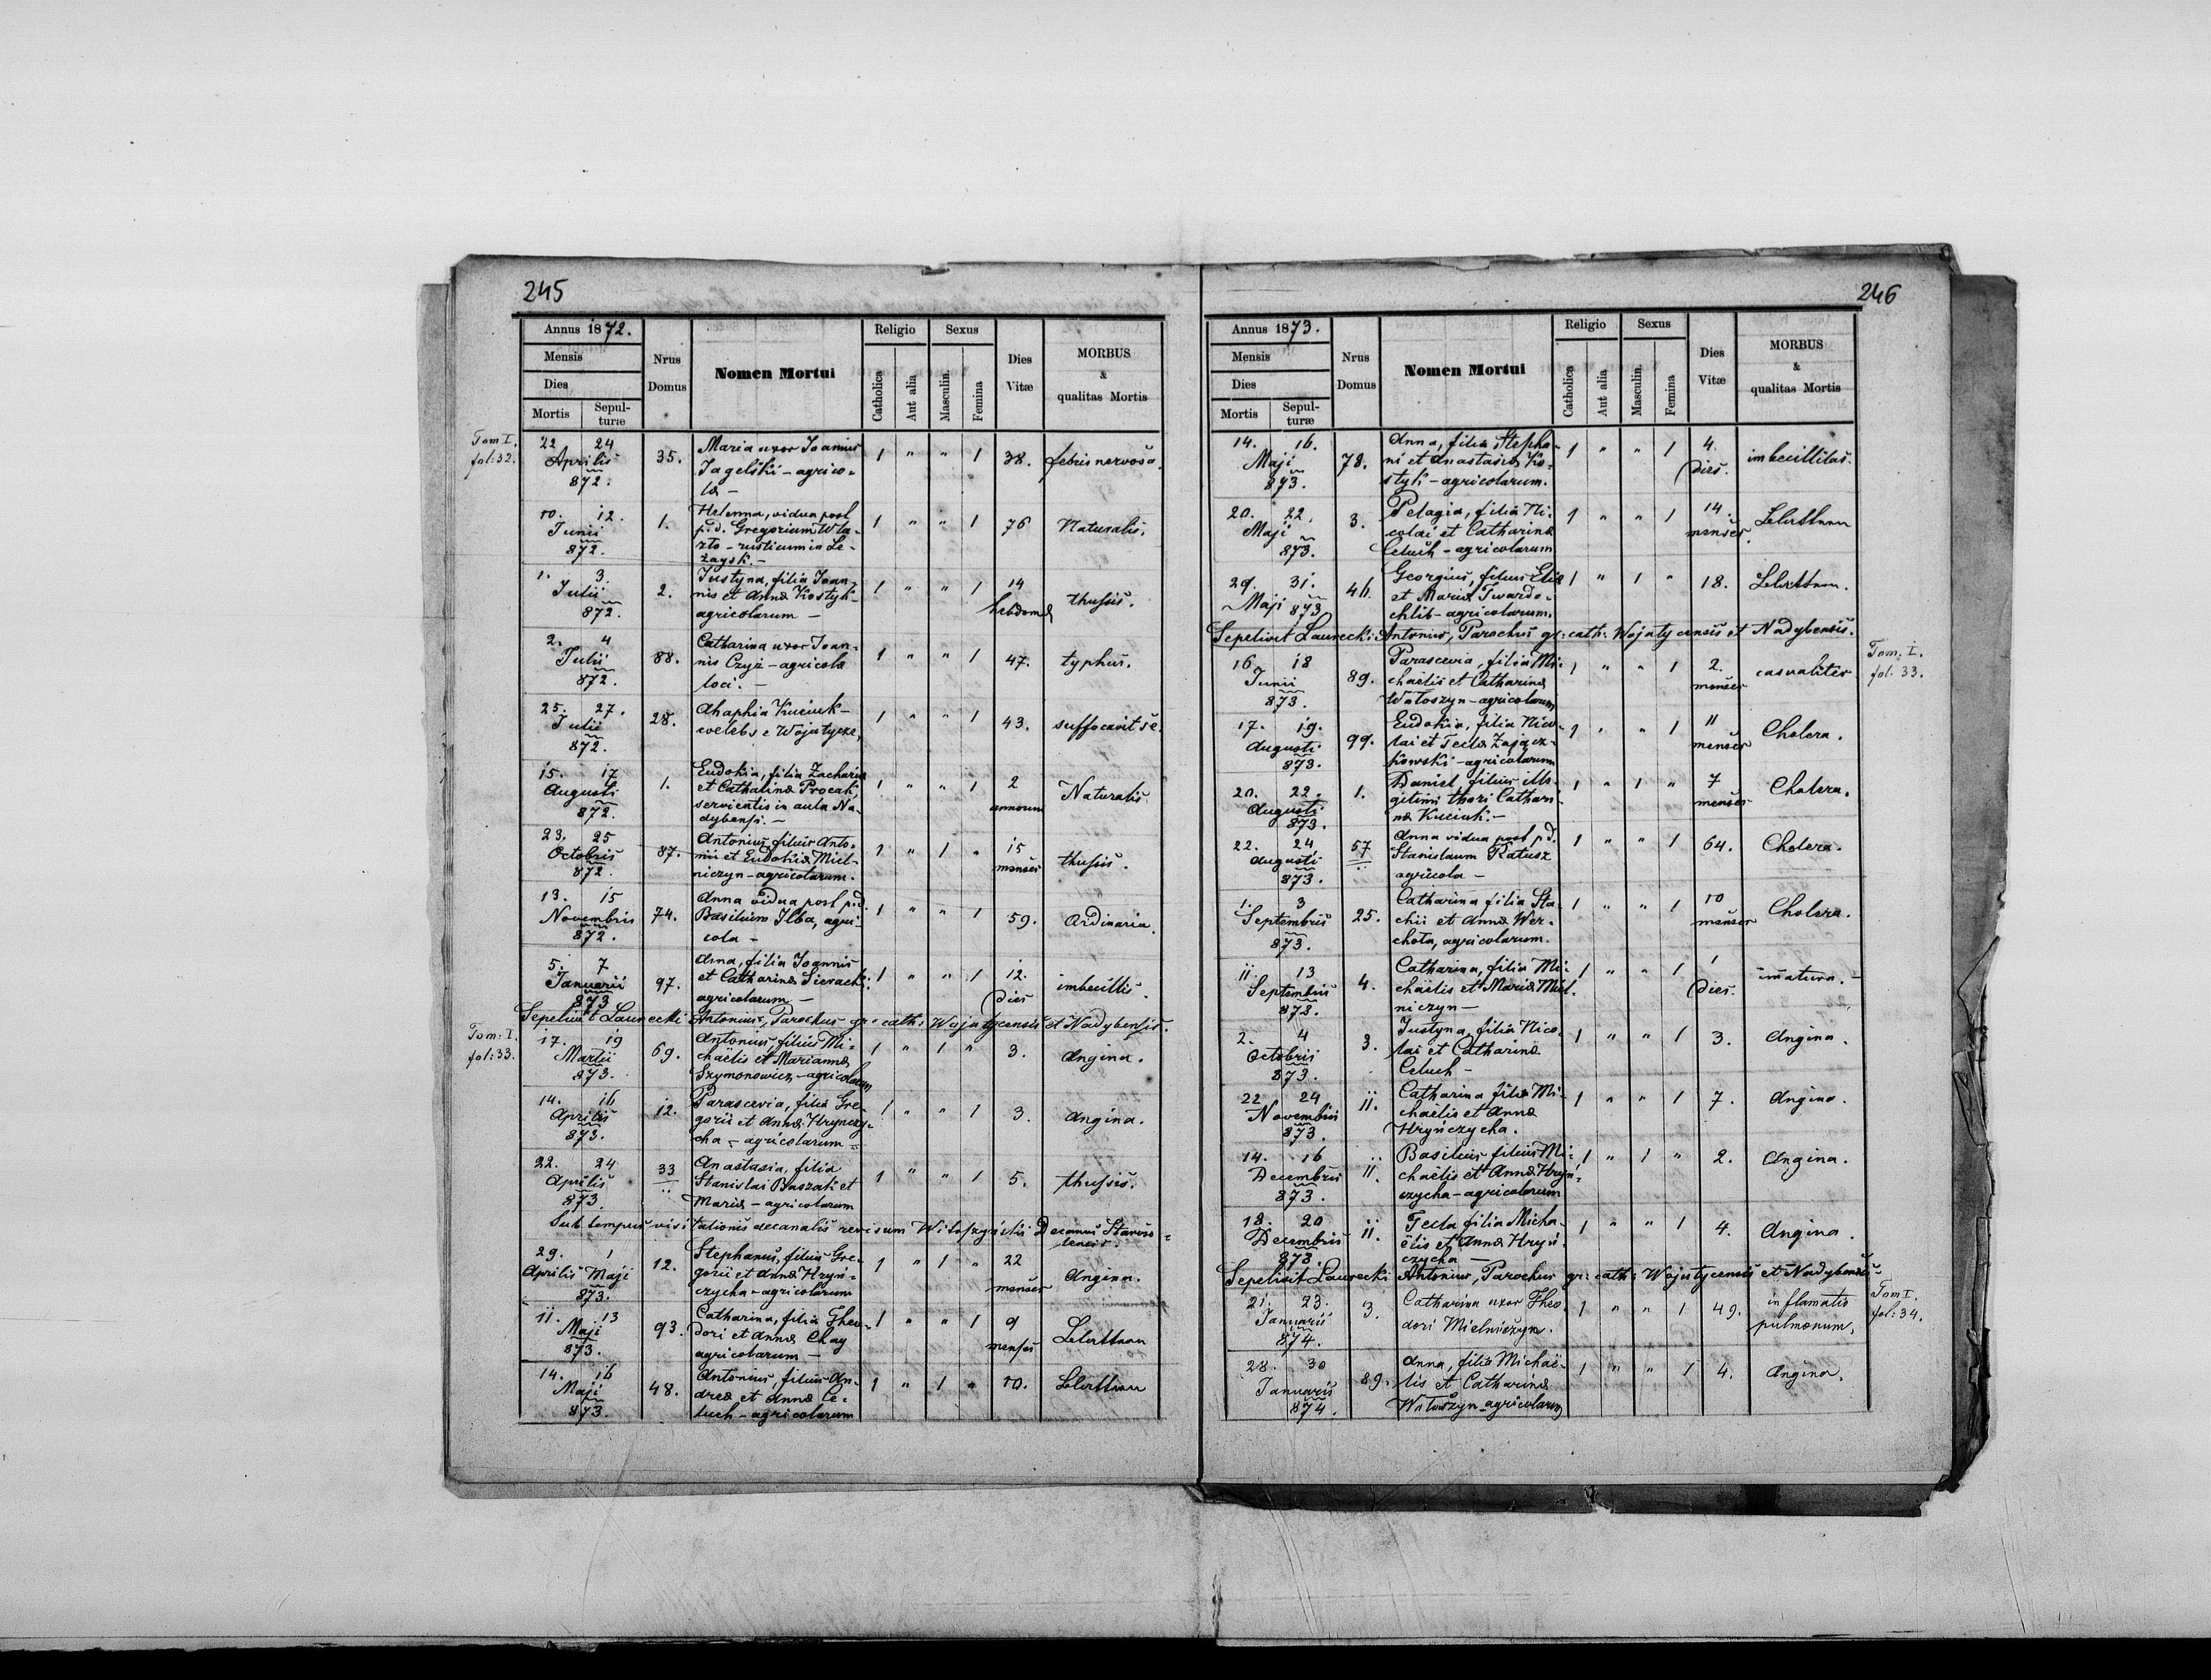 245
Annus 1872.
Mensis
Dies
Mortis
Sepul-
turæ
Nrus
Domus
Nomen Mortui
Religio
Catholica
Aut alia
Sexus
Masculin.
Femina
Dies
Vitæ
MORBUS
&
qualitas Mortis
Tom I.
fol: 32.
22 24
Aprilis
872.
35.
Maria uxor Joannis
Jagelski - agrico-
læ -
1 " " 1
38.
febris nervosa.
10. 12.
Junii
872.
1.
Helenna, vidua post
p. d. Gregorium Wla-
zto - rusticum in Le-
żaysk. -
1 " " 1
76
Naturalis.
1. 3.
Julii
872.
2.
Justyna, filia Joan-
nis et Annæ Kostyk -
agricolarum -
1 " " 1
14
hebdomd
thussis.
2. 4
Julii
872.
88.
Catharina uxor Joan-
nis Czyż - agricolæ
loci. -
1 " " 1
47.
typhus.
25. 27.
Julii
872.
28.
Ahaphia Kuciuk -
coelebs e Wojutycze,
1 " " 1
43.
suffocavit se.
15. 17
Augusti
872.
1.
Eudokia, filia Zachariæ
et Catharinæ Procak,
servientis in aula Na-
dybensi. -
1 " " 1
2
annorum
Naturalis
23. 25
Octobris
872.
87.
Antonius, filius Anto-
nii et Eudokiæ Miel-
niczyn - agricolarum.
1 " 1 "
15
menses
thussis.
13. 15
Novembris
872.
74.
Anna vidua post p. d.
Basilium Ilba, agri-
cola -
1 " " 1
59.
Ordinaria.
5. 7
Januarii
873
97.
Anna, filia Joannis
et Catharinæ Sieracki.
agricolarum -
1 " " 1
12.
dies
imbecillis.
Sepelivit Laurecki Antonius, Parochus gr: cath: Wojutycensis et Nadybensis.
Tom: I.
fol: 33.
17. 19
Martii
873.
69.
Antonius, filius Mi-
chaëlis et Mariannæ
Szymonowicz - agricolarum
1 " 1 "
3.
Angina.
14. 16
Aprilis
873.
12.
Parascevia, filia Gre-
gorii et Annæ Hrynczy-
cha - agricolarum -
1 " " 1
3.
Angina.
22. 24
Aprilis
873.
33
Anastasia, filia
Stanislai Baszak et
Mariæ - agricolarum
1 " " 1
5.
thussis.
Sub tempus visitationis decanalis revisum Witoszyński Decanus
29. 1
Aprilis Maji
873.
12.
Stephanus, filius Gre-
gorii et Annæ Hryń-
czycha - agricolarum
1 " 1 "
22
menses
Angina.
11. 13
Maji
873.
93.
Catharina, filia Theo-
dori et Annæ Chay
agricolarum -
1 " " 1
9
menses
14. 16
Maji
873.
48.
Antonius, filius An-
dreæ et Annæ Ce-
luch - agricolarum
1 " 1 "
10.
246
Annus 1873.
Mensis
Dies
Mortis
Sepul-
turæ
Nrus
Domus
Nomen Mortui
Religio
Catholica
Aut alia
Sexus
Masculin.
Femina
Dies
Vitæ
MORBUS
&
qualitas Mortis
14. 16.
Maji
873.
78.
Anna, filia Stepha-
ni et Anastasiæ Ko-
styk - agricolarum.
1 " " 1
4.
dies.
imbecillitas.
20. 22.
Maji
873.
3.
Pelagia, filia Ni-
colai et Catharinæ
Celuch - agricolarum
1 " " 1
14.
menses.
29. 31.
Maji 873
46.
Georgius, filius Eliæ
et Mariæ Twardo-
chlib - agricolarum.
1 " 1 "
18.
Sepelivit Laurecki Antonius, Parochus gr: cath: Wojutycensis et Nadybensis.
Tom: I.
fol. 33.
16 18
Junii
873.
89.
Parascevia, filia Mi-
chaëlis et Catharinæ
Watoszyn - agricolarum
1 " " 1
2.
menses
casualiter
17. 19.
Augusti
873.
99.
Eudokia, filia Nico-
lai et Teclæ Zającz-
kowski - agricolarum
1 " " 1
11
menses
Cholera.
20. 22.
Augusti
873.
1.
Daniel filius ille-
gitimi thori Cathari-
næ Kuciuk. -
1 " 1 "
7
menses
Cholera.
22. 24
Augusti
873.
57
Anna vidua post p. d.
Stanislaum Ratusz
agricola -
1 " " 1
64.
Cholera.
1. 3
Septembris
873.
25.
Catharina filia Sta-
chii et Annæ Wer-
chota, agricolarum.
1 " " 1
10
menses
Cholera.
11. 13
Septembris
873.
4.
Catharina, filia Mi-
chaëlis et Mariæ Miel-
niczyn -
1 " " 1
1
dies.
immatura. -
2. 4
Octobris
873.
3.
Justyna, filia Nico-
lai et Catharinæ
Celuch -
1 " " 1
3.
Angina.
22 24
Novembris
873.
11.
Catharina filia Mi-
chaëlis et Annæ
Hryńczycha.
1 " " 1
7.
Angina.
14. 16
Decembris
873.
11.
Basilius filius Mi-
chaëlis et Annæ Hryń-
czycha - agricolarum
1 " 1 "
2.
Angina.
18. 20
Decembris
873.
11.
Tecla filia Micha-
ëlis et Annæ Hryń-
czycha -
1 " " 1
4.
Angina.
Sepelivit Laurecki Antonius, Parochus gr: cath: Wojutycensis et Nadybensis -
Tom I.
fol: 34.
21. 23.
Januarii
874.
3.
Catharina uxor Theo-
dori Mielniczyn.
1 " " 1
49.
inflamatio
pulmonum.
28. 30
Januarii
874.
89.
Anna, filia Michaë-
lis et Catharinæ
Watoszyn - agricolarum
1 " " 1
4.
Angina.